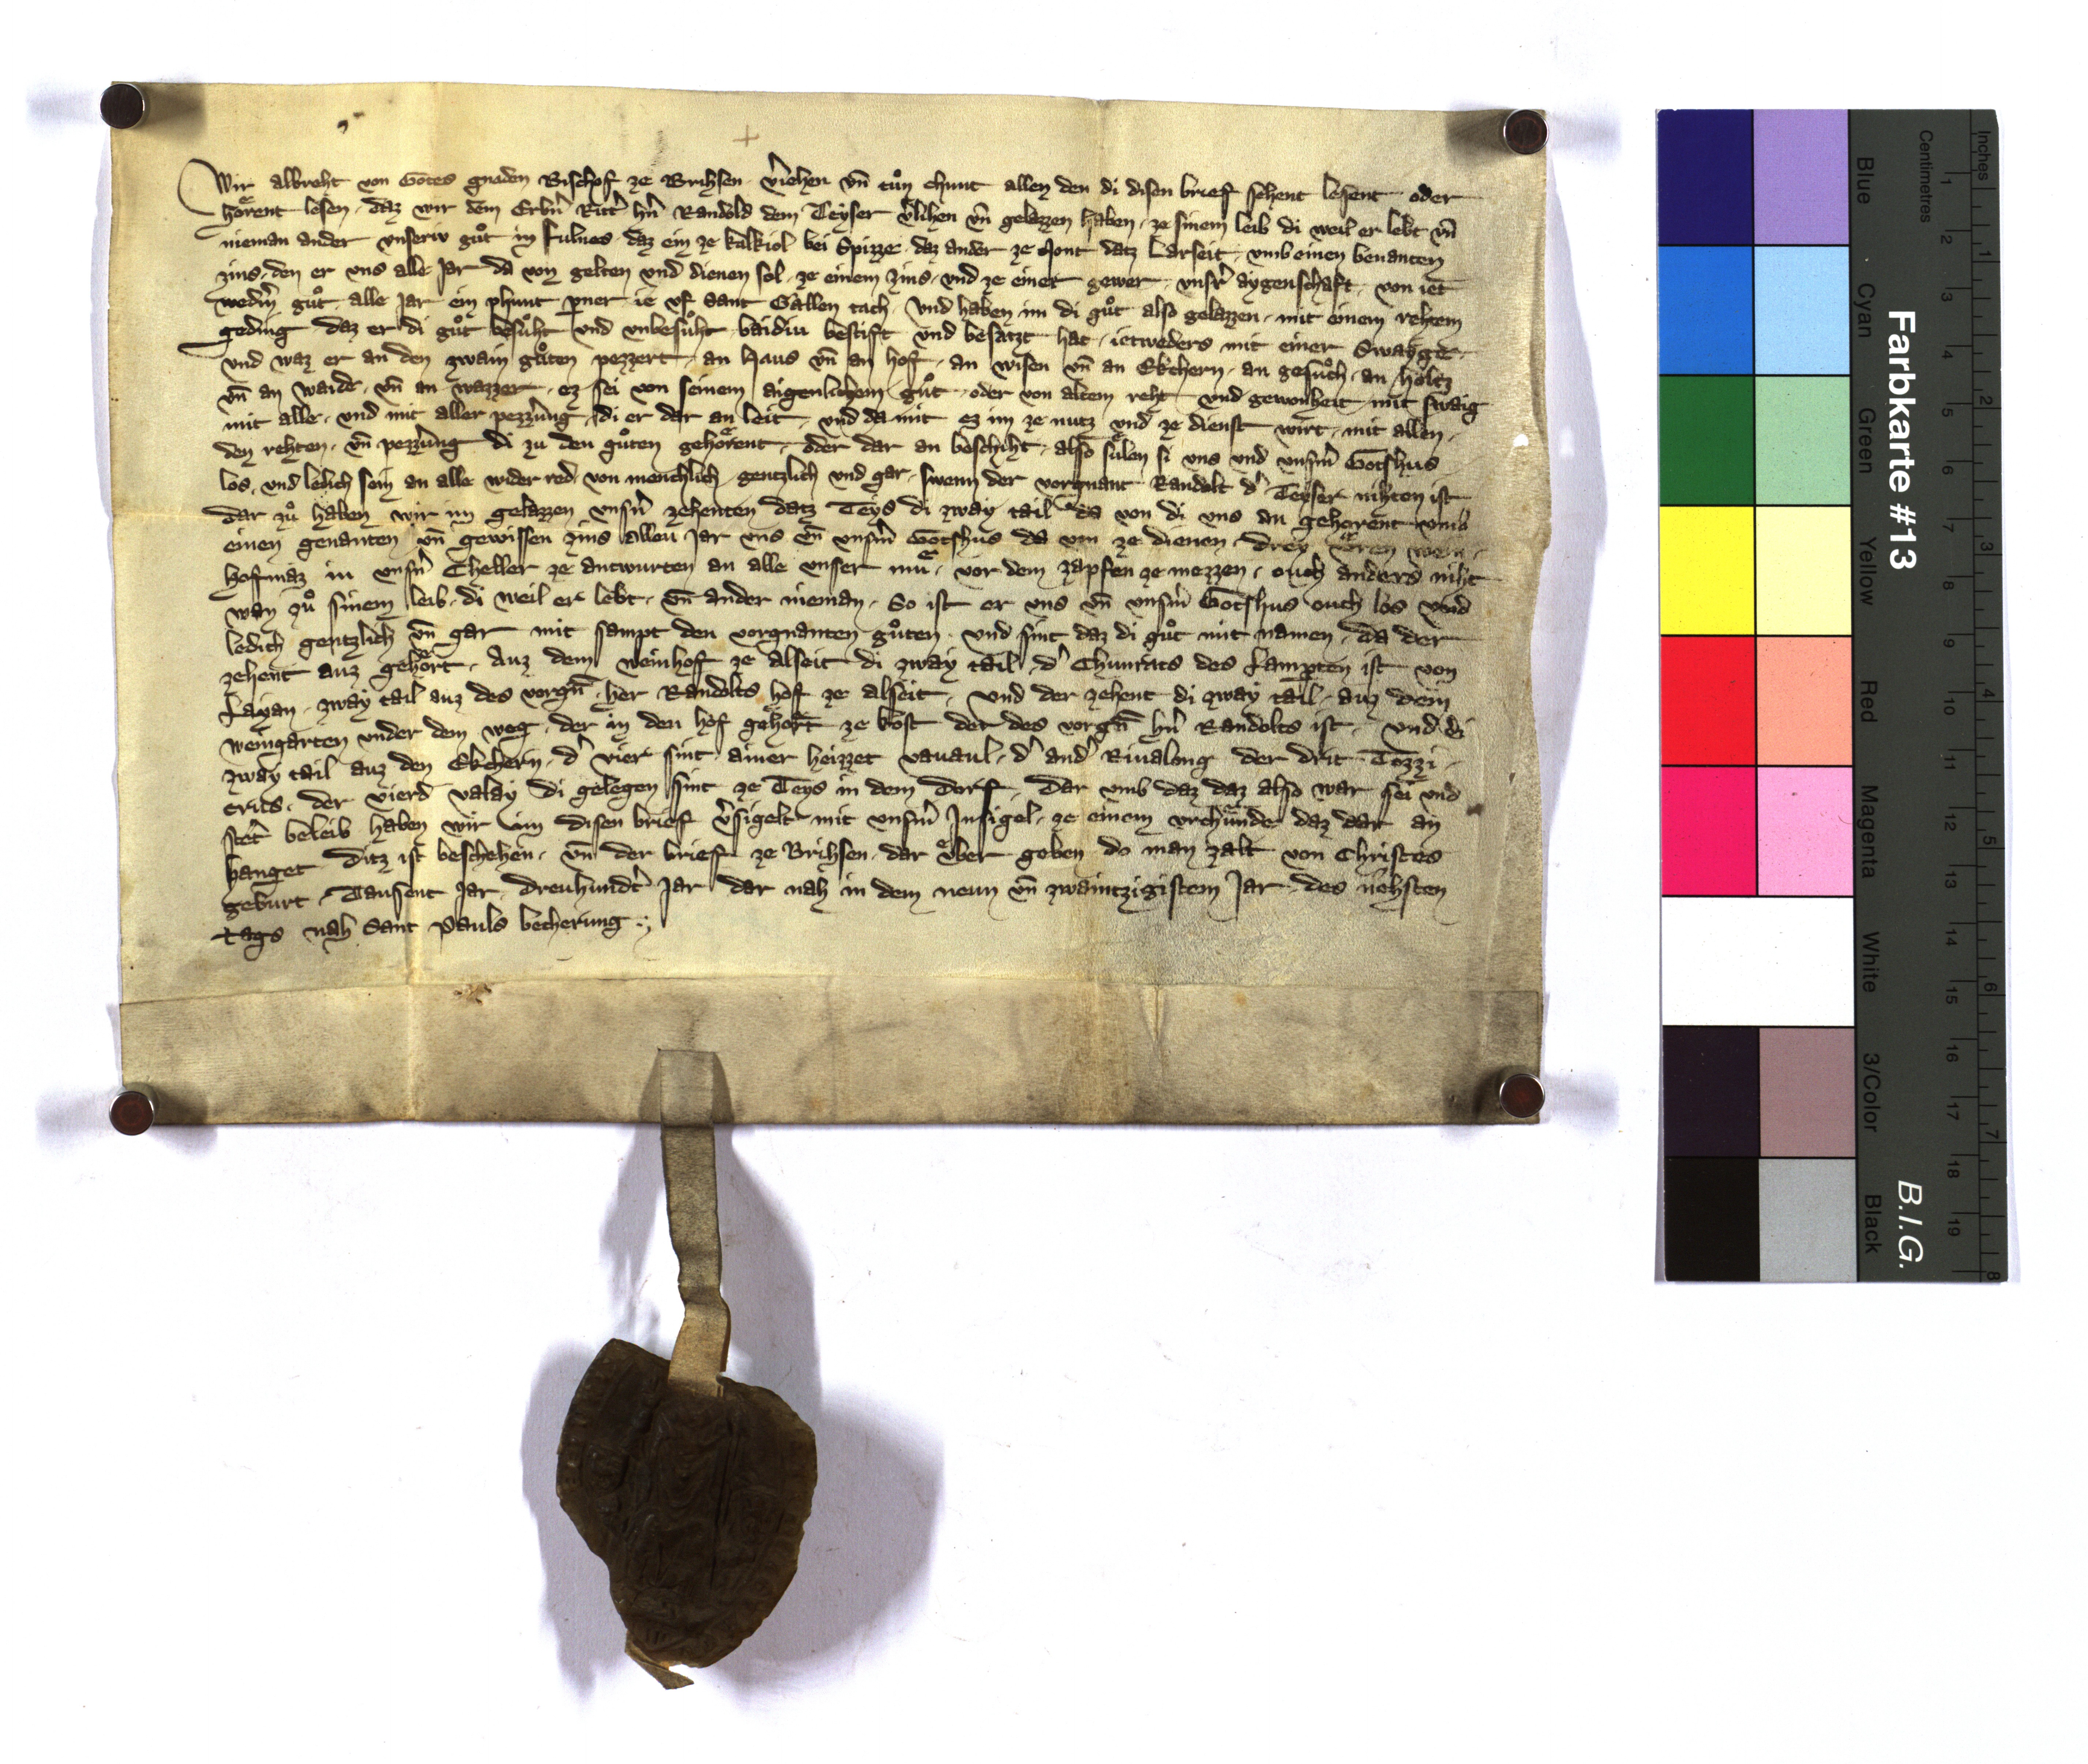 Wir albreht von Gotes gnaden Bischof ze Brihsen v̾iehen vn̄ tůn chunt allen den di disen brief sehent lesent oder
hoͤrent lesen daz wir dem Erbn̄ Ritt̾ hn̄ Randold dem Teyser v̾lihen vn̄ gelazzen haben ze sinem leib di weil er lebt vn̄
nieman ander vnserw gůt in fulnes daz ein ze kalkiol bei Spizze daz ander ze Mont datz Larseit vmb einen benanten
zins den er vns alle Jar da von gelten vnd dienen sol ze einem zins vnd ze einer gewer vnsr̾ aygenschaft von iet
wedm̾ gůt alle Jar ein phunt pner ie vf Sant Gallen tach vnd haben im di gůt also gelazzen mit einem rehtem
geding daz er di gůt besůht vnd vnbesůht baidiu bestift vnd besatzt hat ietweders mit einer Swayge
vnd waz er an den zwain gůten pezzert an Haus vn̄ an hof an wisen vn̄ an Ekchern an gesůch an holtz
vn̄ an waide vn̄ an wazzer ez sei von seinem aigenlichem gůt oder von altem reht vnd gewonheit mit swaig
mit alle vnd mit aller pezz̾ung di er dar an leit vnd da mit ez im ze nutz vnd ze dienst wirt mit allen
den rehten vn̄ pezz̾ung di zu den gůten gehoͤrent oder dar an beschiht also suͤlen si vns vnd vnsm̾ Gotshus
los vnd ledich sein an alle wider red von menchlich gentzlich vnd gar swenn der vorgnant Randolt d̾ Teyser nihten ist
dar zů haben wir im gelazzen vnsn̾ zehenten datz Teys di zway tail da von di vns an gehorent vmb
einen genanten vn̄ gewissen zins alleu Jar vns vn̄ vnsm̾ Gotshus da von ze dienen drey wein
hofmaz in vnsn̾ Cheller ze antwurten an alle vnser muͤ vor dem zapfen ze mezzen ouch anders niht
wan zů sinem leib di weil er lebt vn̄ ander nieman So ist er vns vn̄ vnsm̾ Gotshus ouch los vnd
ledich gentzlich vn̄ gar mit sampt den vorgnanten gůten vnd sint daz di gůt mit namen da der
zehent auz gehoͤrt Auz dem weinhof ze alseit di zway tail d̾ Chunrats des Lampten ist von
Layan zway tail auz des vorgn̄ her Randolts hof ze alseit vnd der zehent di zway tail auz dem
weingarten vnder dem weg der in den hof gehoͤrt ze kost der des vorgn̄ hn̄ Randolts ist vnd di
zway tail auz den Ekchern d̾ vier sint ainer heizzet vauaul d̾ and̾ Riualong der drit Tozzi
erits der vierd valay di gelegen sint ze Teys in dem dorf Dar vmb daz daz also war sei vnd
stet̾ beleib haben wir im disen brief v̾sigelt mit vnsm̾ Jnsigel ze einem vrchuͤnde daz dar an
hanget Ditz ist beschehen vn̄ der brief ze Brihsen dar uͤber geben do man zalt von Christes
geburt Tausent Jar dreuhundt̾ Jar dar nah in dem neun vn̄ zwaintzigistem Jar des nehsten
tags nah Sant Pauls becherung
Farbkarte #13
B.I.G.
Centimetres
Inches
Blue
Cyan
Green
Yellow
Red
Magenta
White
3/Color
Black
1 2 3 4 5 6 7 8 9 10 11 12 13 14 15 16 17 18 19
1 2 3 4 5 6 7 8